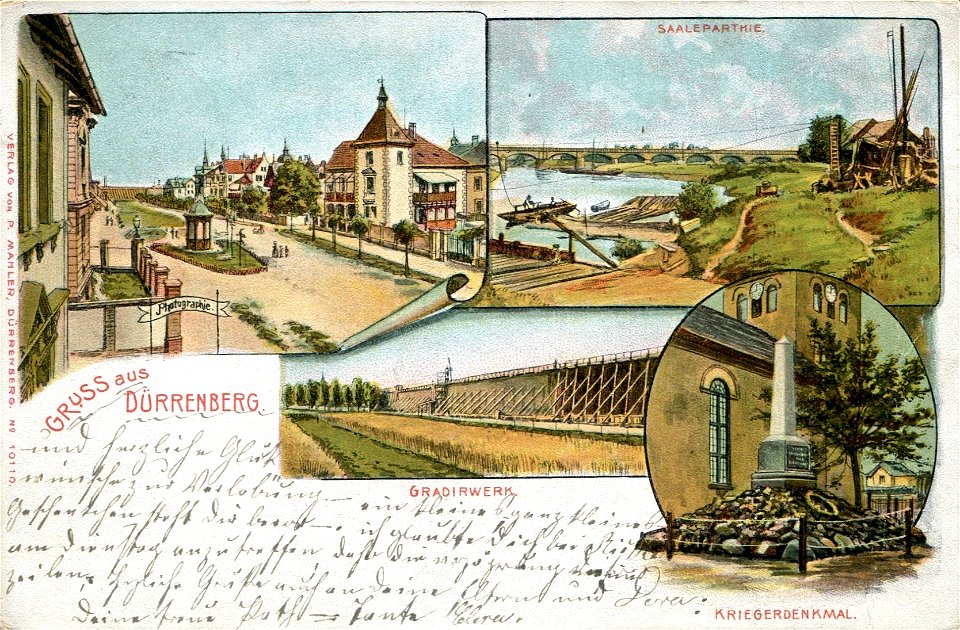 SAALEPARTHIE.
Photographie.
VERLAG VON P. MAHLER, DÜRRENBERG. No 10110.
GRUSS aus
DÜRRENBERG.
GRADIRWERK.
KRIEGERDENKMAL.
und herzliche Glück
wünsche zur Verlobung
Geschenkchen steht Dir bevor ein kleines ganz kleines
am Dienstag anzutreffen, ich glaubte Dich bei
Zeilen, herzliche Grüße auch an Deine Eltern und Dora.
Deine treue Path Tante Clara.